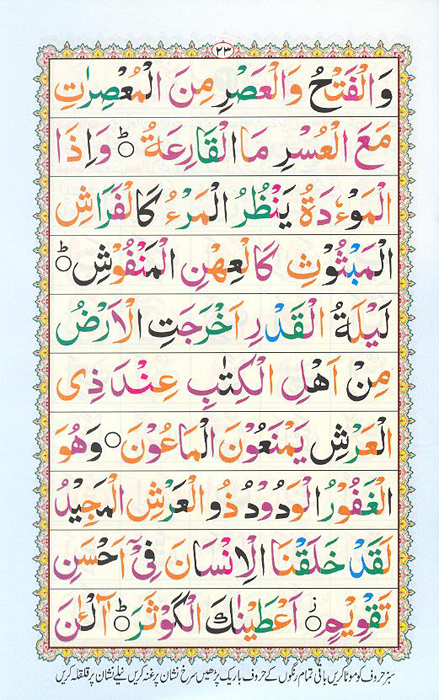 ٢٣
وَالْفَتْحُ وَالْعَصْرِ مِنَ الْمُعْصِرٰتِ
مَعَ الْعُسْرِ مَاالْقَارِعَةُ ○ؕ وَاِذَا
الْمَوْءٗدَةُ يَنْظُرُ الْمَرْءُ كَالْفَرَاشِ
الْمَبْثُوْثِ كَالْعِهْنِ الْمَنْفُوْشِ ○ؕ
لَيْلَةُ الْقَدْرِ اَخْرَجَتِ الْاَرْضُ
مِنْ اَهْلِ الْكِتٰبِ عِنْدَ ذِى
الْعَرْشِ يَمْنَعُوْنَ الْمَاعُوْنَ ○ وَهُوَ
الْغَفُوْرُ الْوَدُوْدُ ذُو الْعَرْشِ الْمَجِيْدُ
لَقَدْ خَلَقْنَا الْاِنْسَانَ فِىْٓ اَحْسَنِ
تَقْوِيْمٍ ○ز اَعْطَيْنٰكَ الْكَوْثَرَ ○ؕ آلْـٰٔنَ
سبز حروف کو موٹا کریں باقی تمام رنگوں کے حروف باریک پڑھیں سرخ نشان پر غنہ کریں نیلے نشان پر قلقلہ کریں